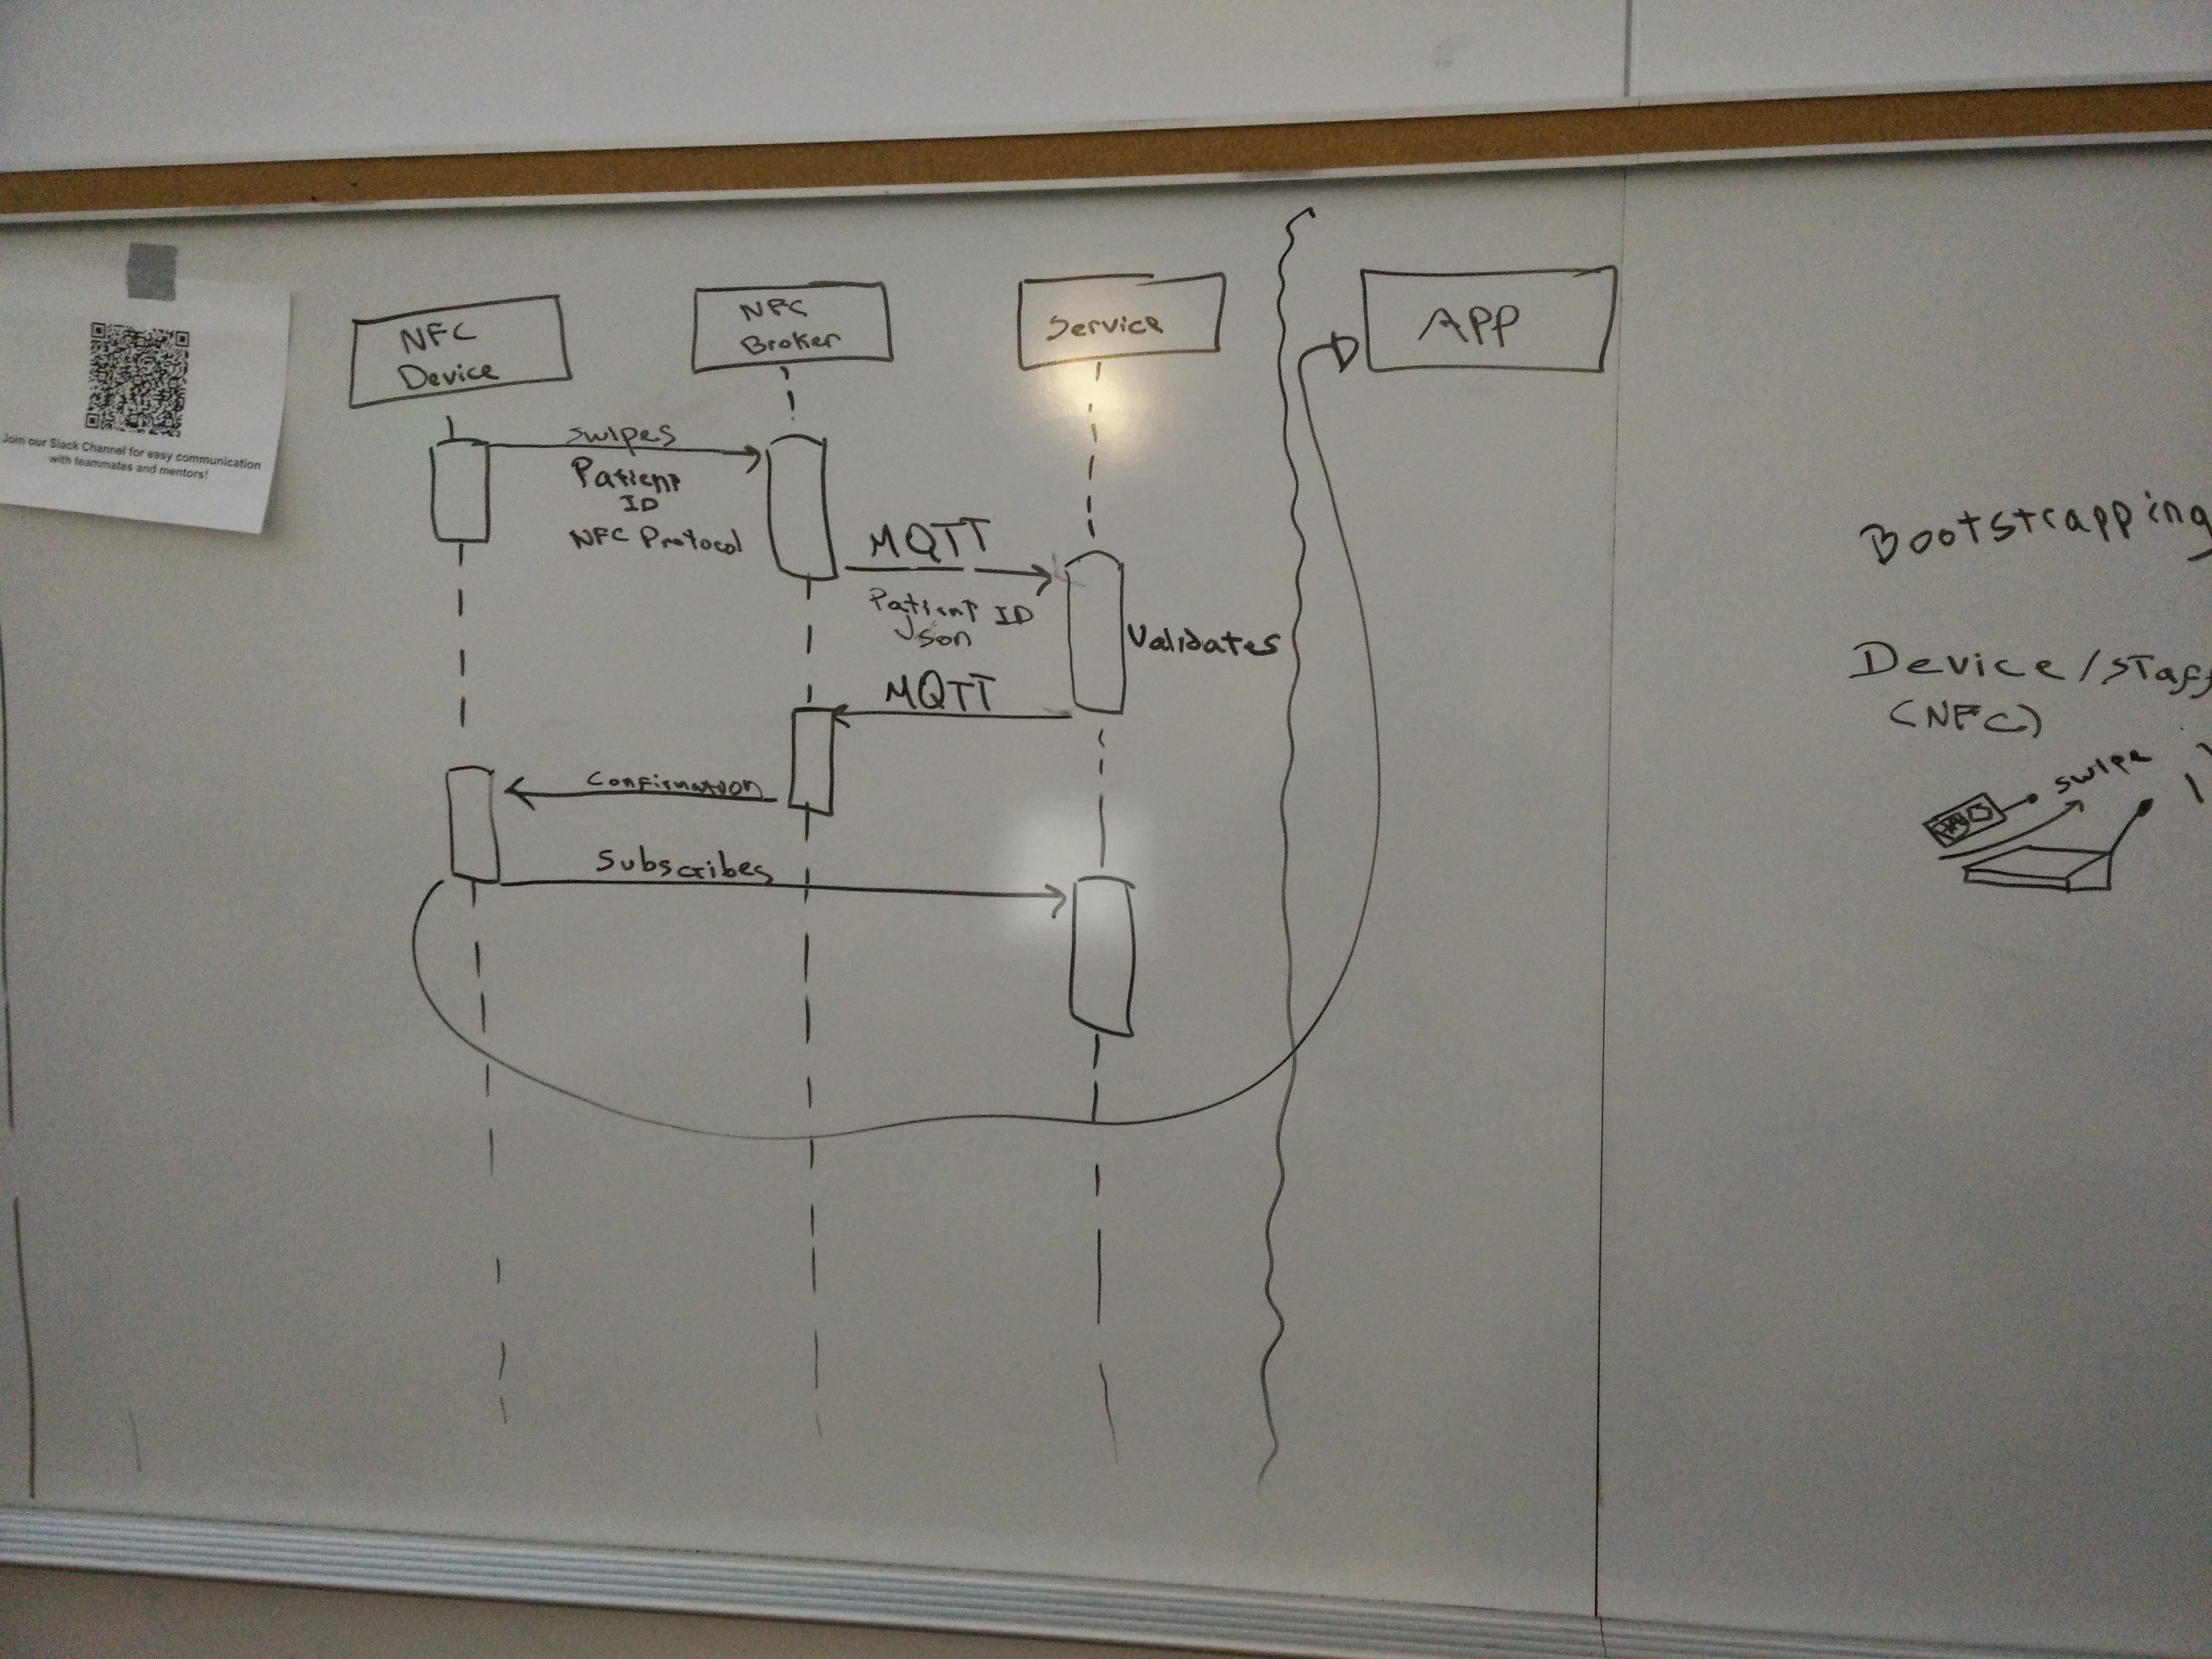 Join our Slack Channel for easy communication
with teammates and mentors!
NFC
Device
NFC
Broker
Service
APP
swipes
Patient
ID
NFC Protocol
MQTT
Patient ID
Json
Validates
MQTT
Confirmation
Subscribes
Bootstrapping
Device/Staff
(NFC)
swipe